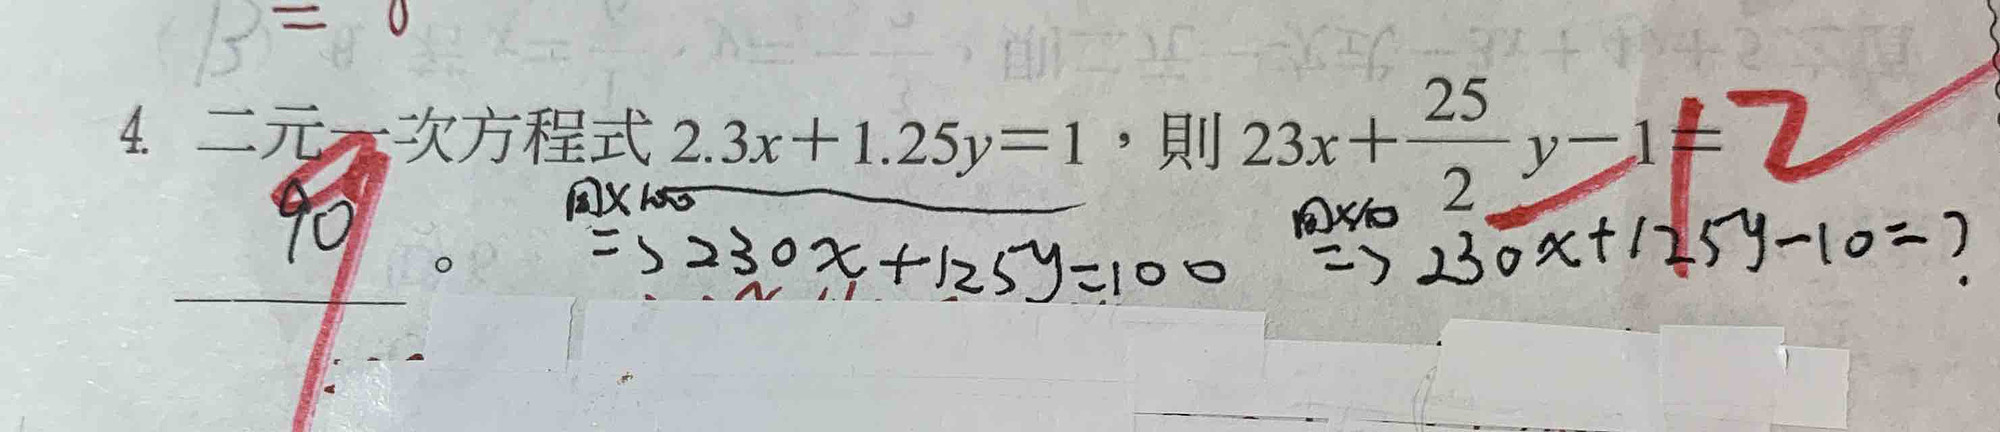 = 0
4. 二元一次方程式 2.3x+1.25y=1,則 23x+25/2 y-1=
同×100
同×10
90 。 => 230x+125y=100 => 230x+125y-10=?